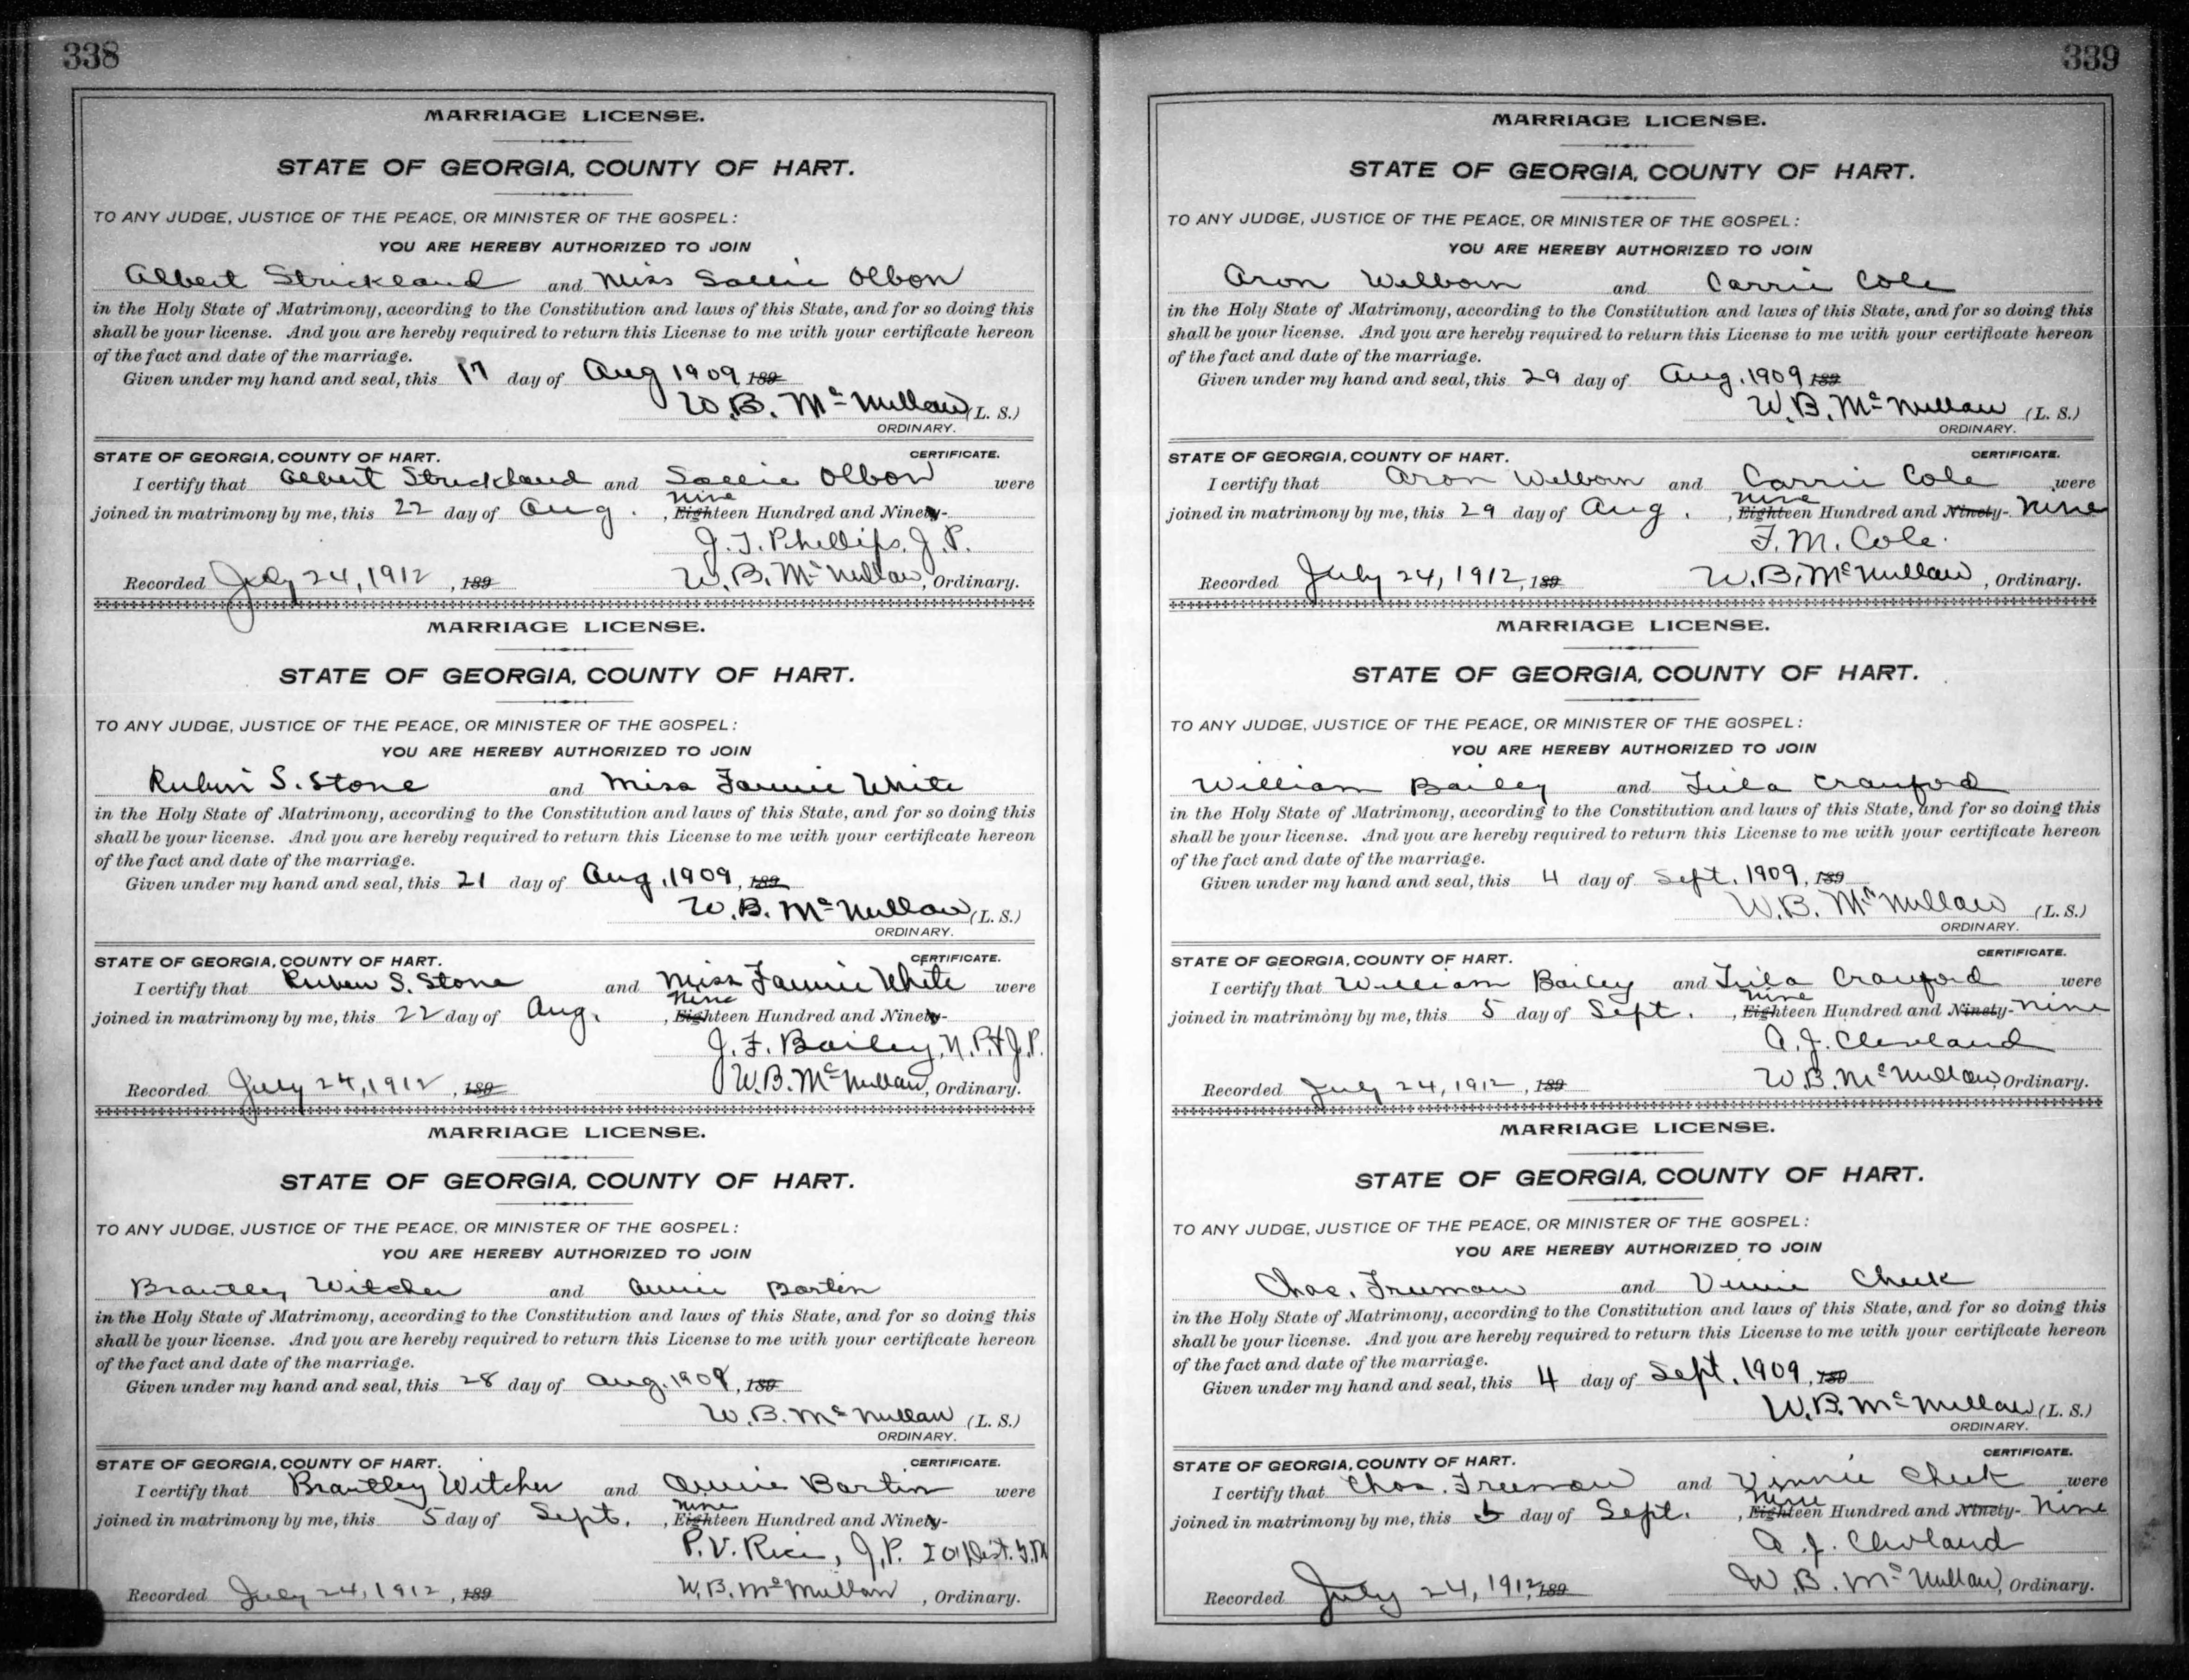 338
MARRIAGE LICENSE.
STATE OF GEORGIA, COUNTY OF HART.
TO ANY JUDGE, JUSTICE OF THE PEACE, OR MINISTER OF THE GOSPEL:
YOU ARE HEREBY AUTHORIZED TO JOIN
Albert Strickland and Miss Sallie Olbon
in the Holy State of Matrimony, according to the Constitution and laws of this State, and for so doing this
shall be your license. And you are hereby required to return this License to me with your certificate hereon
of the fact and date of the marriage.
Given under my hand and seal, this 17 day of Aug 1909 189
W. B. McMullan (L. S.)
ORDINARY.
STATE OF GEORGIA, COUNTY OF HART. CERTIFICATE.
I certify that Albert Strickland and Sallie Olbon were
joined in matrimony by me, this 22 day of Aug. , Nine Eighteen Hundred and Ninety-
J. T. Phillips, J. P.
Recorded July 24, 1912 , 189 W. B. McMullan, Ordinary.
MARRIAGE LICENSE.
STATE OF GEORGIA, COUNTY OF HART.
TO ANY JUDGE, JUSTICE OF THE PEACE, OR MINISTER OF THE GOSPEL:
YOU ARE HEREBY AUTHORIZED TO JOIN
Ruben S. Stone and Miss Fannie White
in the Holy State of Matrimony, according to the Constitution and laws of this State, and for so doing this
shall be your license. And you are hereby required to return this License to me with your certificate hereon
of the fact and date of the marriage.
Given under my hand and seal, this 21 day of Aug, 1909, 189
W. B. McMullan (L. S.)
ORDINARY.
STATE OF GEORGIA, COUNTY OF HART. CERTIFICATE.
I certify that Ruben S. Stone and Miss Fannie White were
joined in matrimony by me, this 22 day of Aug. , Nine Eighteen Hundred and Ninety-
J. F. Bailey, N. P. & J. P.
Recorded July 24, 1912 , 189 W. B. McMullan, Ordinary.
MARRIAGE LICENSE.
STATE OF GEORGIA, COUNTY OF HART.
TO ANY JUDGE, JUSTICE OF THE PEACE, OR MINISTER OF THE GOSPEL:
YOU ARE HEREBY AUTHORIZED TO JOIN
Brantley Witcher and Annie Bartin
in the Holy State of Matrimony, according to the Constitution and laws of this State, and for so doing this
shall be your license. And you are hereby required to return this License to me with your certificate hereon
of the fact and date of the marriage.
Given under my hand and seal, this 28 day of Aug. 1909, 189
W. B. McMullan (L. S.)
ORDINARY.
STATE OF GEORGIA, COUNTY OF HART. CERTIFICATE.
I certify that Brantley Witcher and Annie Bartin were
joined in matrimony by me, this 5 day of Sept. , Nine Eighteen Hundred and Ninety-
P. V. Rice, J. P. Dist. G. M
Recorded July 24, 1912 , 189 W. B. McMullan , Ordinary.
339
MARRIAGE LICENSE.
STATE OF GEORGIA, COUNTY OF HART.
TO ANY JUDGE, JUSTICE OF THE PEACE, OR MINISTER OF THE GOSPEL:
YOU ARE HEREBY AUTHORIZED TO JOIN
Aron Welborn and Carrie Cole
in the Holy State of Matrimony, according to the Constitution and laws of this State, and for so doing this
shall be your license. And you are hereby required to return this License to me with your certificate hereon
of the fact and date of the marriage.
Given under my hand and seal, this 29 day of Aug, 1909 189
W. B. McMullan (L. S.)
ORDINARY.
STATE OF GEORGIA, COUNTY OF HART. CERTIFICATE.
I certify that Aron Welborn and Carrie Cole were
joined in matrimony by me, this 29 day of Aug. , Nine Eighteen Hundred and Ninety- Nine
F. M. Cole.
Recorded July 24, 1912, 189 W. B. McMullan , Ordinary.
MARRIAGE LICENSE.
STATE OF GEORGIA, COUNTY OF HART.
TO ANY JUDGE, JUSTICE OF THE PEACE, OR MINISTER OF THE GOSPEL:
YOU ARE HEREBY AUTHORIZED TO JOIN
William Bailey and Lula Crauford
in the Holy State of Matrimony, according to the Constitution and laws of this State, and for so doing this
shall be your license. And you are hereby required to return this License to me with your certificate hereon
of the fact and date of the marriage.
Given under my hand and seal, this 4 day of Sept, 1909, 189
W. B. McMullan (L. S.)
ORDINARY.
STATE OF GEORGIA, COUNTY OF HART. CERTIFICATE.
I certify that William Bailey and Lula Crauford were
joined in matrimony by me, this 5 day of Sept. , Nine Eighteen Hundred and Ninety- Nine
A. J. Cleveland
Recorded July 24, 1912 , 189 W. B. McMullan, Ordinary.
MARRIAGE LICENSE.
STATE OF GEORGIA, COUNTY OF HART.
TO ANY JUDGE, JUSTICE OF THE PEACE, OR MINISTER OF THE GOSPEL:
YOU ARE HEREBY AUTHORIZED TO JOIN
Chas. Freeman and Vinnie Cheek
in the Holy State of Matrimony, according to the Constitution and laws of this State, and for so doing this
shall be your license. And you are hereby required to return this License to me with your certificate hereon
of the fact and date of the marriage.
Given under my hand and seal, this 4 day of Sept, 1909, 189
W. B. McMullan (L. S.)
ORDINARY.
STATE OF GEORGIA, COUNTY OF HART. CERTIFICATE.
I certify that Chas. Freeman and Vinnie Cheek were
joined in matrimony by me, this 5 day of Sept. , Nine Eighteen Hundred and Ninety- Nine
A. J. Cleveland
Recorded July 24, 1912, 189 W. B. McMullan, Ordinary.